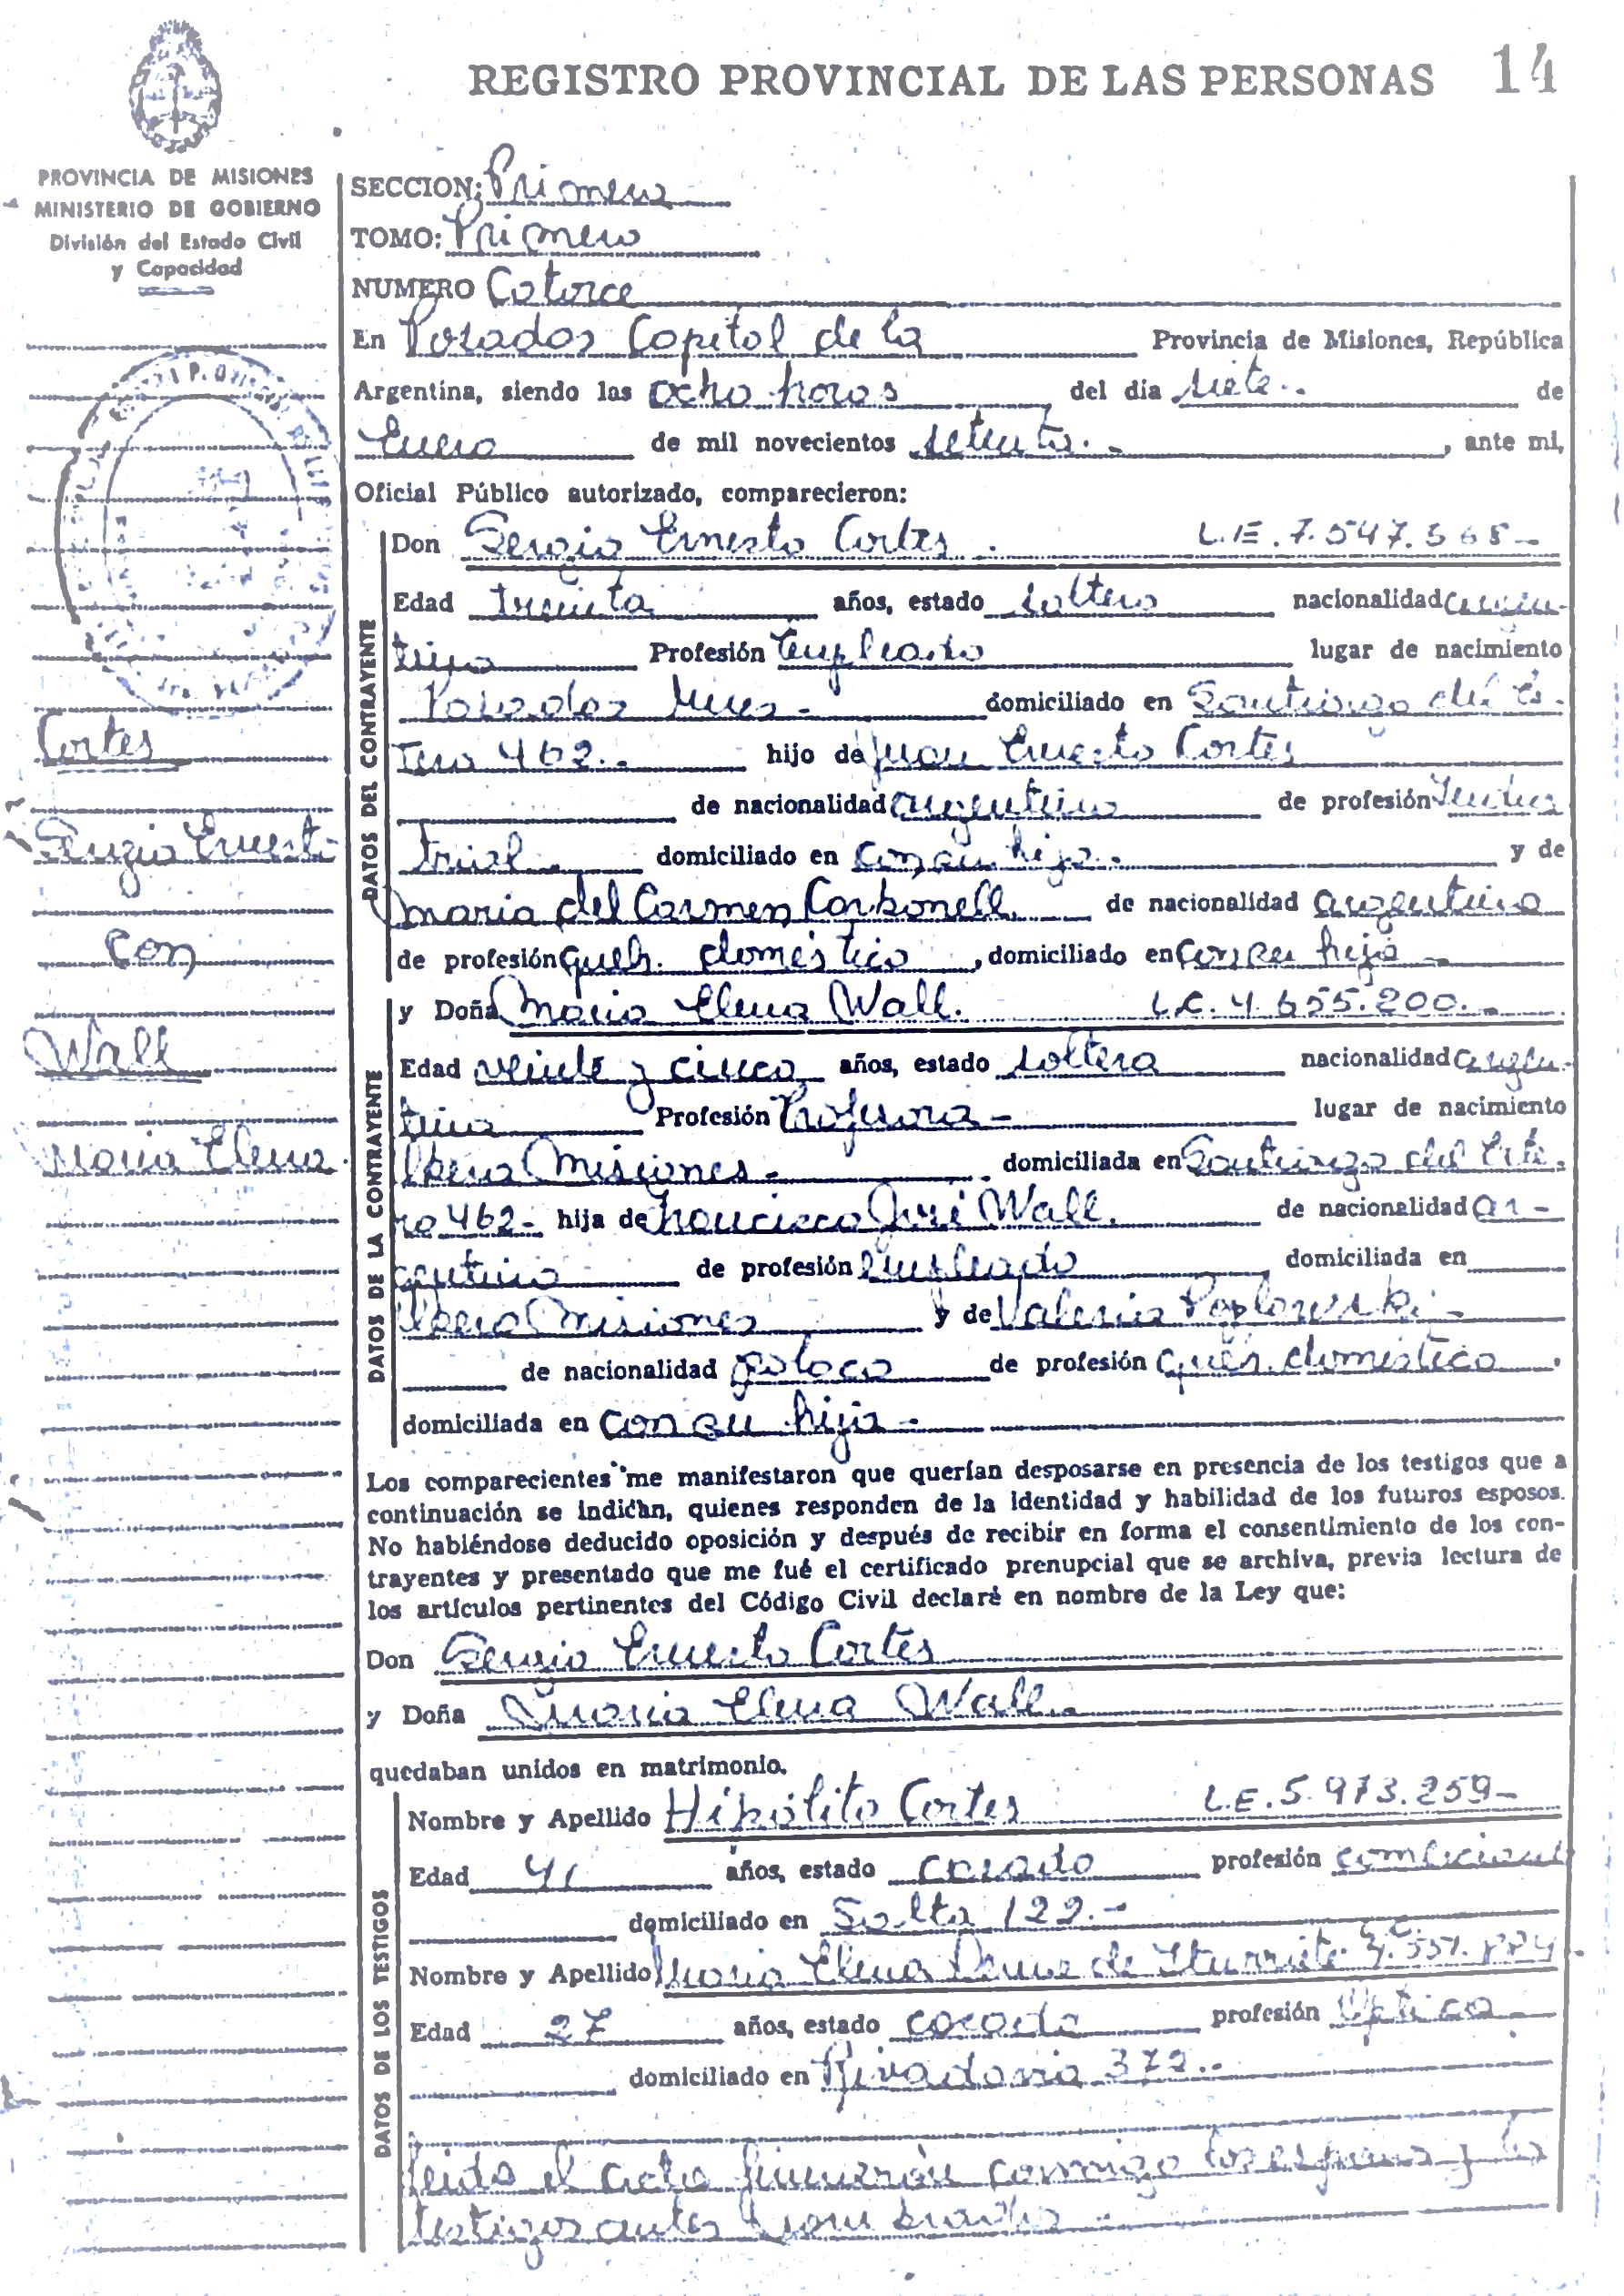 REGISTRO PROVINCIAL DE LAS PERSONAS 14
PROVINCIA DE MISIONES
MINISTERIO DE GOBIERNO
División del Estado Civil
y Capacidad
SECCION: Primera
TOMO: Primero
NUMERO Catorce
En Posadas Capital de la Provincia de Misiones, República
Argentina, siendo las ocho horas del día siete.- de
Enero de mil novecientos setenta.- , ante mi,
Oficial Público autorizado, comparecieron:
DATOS DEL CONTRAYENTE
Don Sergio Ernesto Cortes. L.E. 7.547.568-
Edad treinta años, estado soltero nacionalidad argen-
tino Profesión Empleado lugar de nacimiento
Posadas Mnes- domiciliado en Santiago del Es-
tero 462.- hijo de Juan Ernesto Cortes
de nacionalidad argentino de profesión Indus
trial- domiciliado en con su hijo.- y de
Maria del Carmen Carbonell. de nacionalidad argentina
de profesión queh. domestico , domiciliado en con su hijo-
DATOS DE LA CONTRAYENTE
y Doña Maria Elena Wall. L.C. 4.655.200.-
Edad veinte y cinco años, estado soltera nacionalidad argen-
tina Profesión Profesora- lugar de nacimiento
Obera Misiones- domiciliada en Santiago del Este-
ro 462- hija de Francisco José Wall. de nacionalidad ar-
gentino de profesión empleado domiciliada en
Obera Misiones y de Valeria Poplowski-
de nacionalidad polaca de profesión queh. domestico.
domiciliada en con su hija-
Los comparecientes me manifestaron que querían desposarse en presencia de los testigos que a
continuación se indican, quienes responden de la identidad y habilidad de los futuros esposos.
No habiéndose deducido oposición y después de recibir en forma el consentimiento de los con-
trayentes y presentado que me fué el certificado prenupcial que se archiva, previa lectura de
los artículos pertinentes del Código Civil declaré en nombre de la Ley que:
Don Sergio Ernesto Cortes
y Doña Maria Elena Wall.-
quedaban unidos en matrimonio.
DATOS DE LOS TESTIGOS
Nombre y Apellido Hipólito Cortes L.E. 5.973.259-
Edad 41 años, estado casado profesión comerciant
domiciliado en Salta 122.-
Nombre y Apellido Maria Elena de
Edad 27 años, estado casada profesión Optica-
domiciliado en Rivadavia 372.-
Leida el acta firmaron conmigo los esposos y los
testigos antes nombrados-
Cortes
Sergio Ernest
con
Wall
Maria Elena.